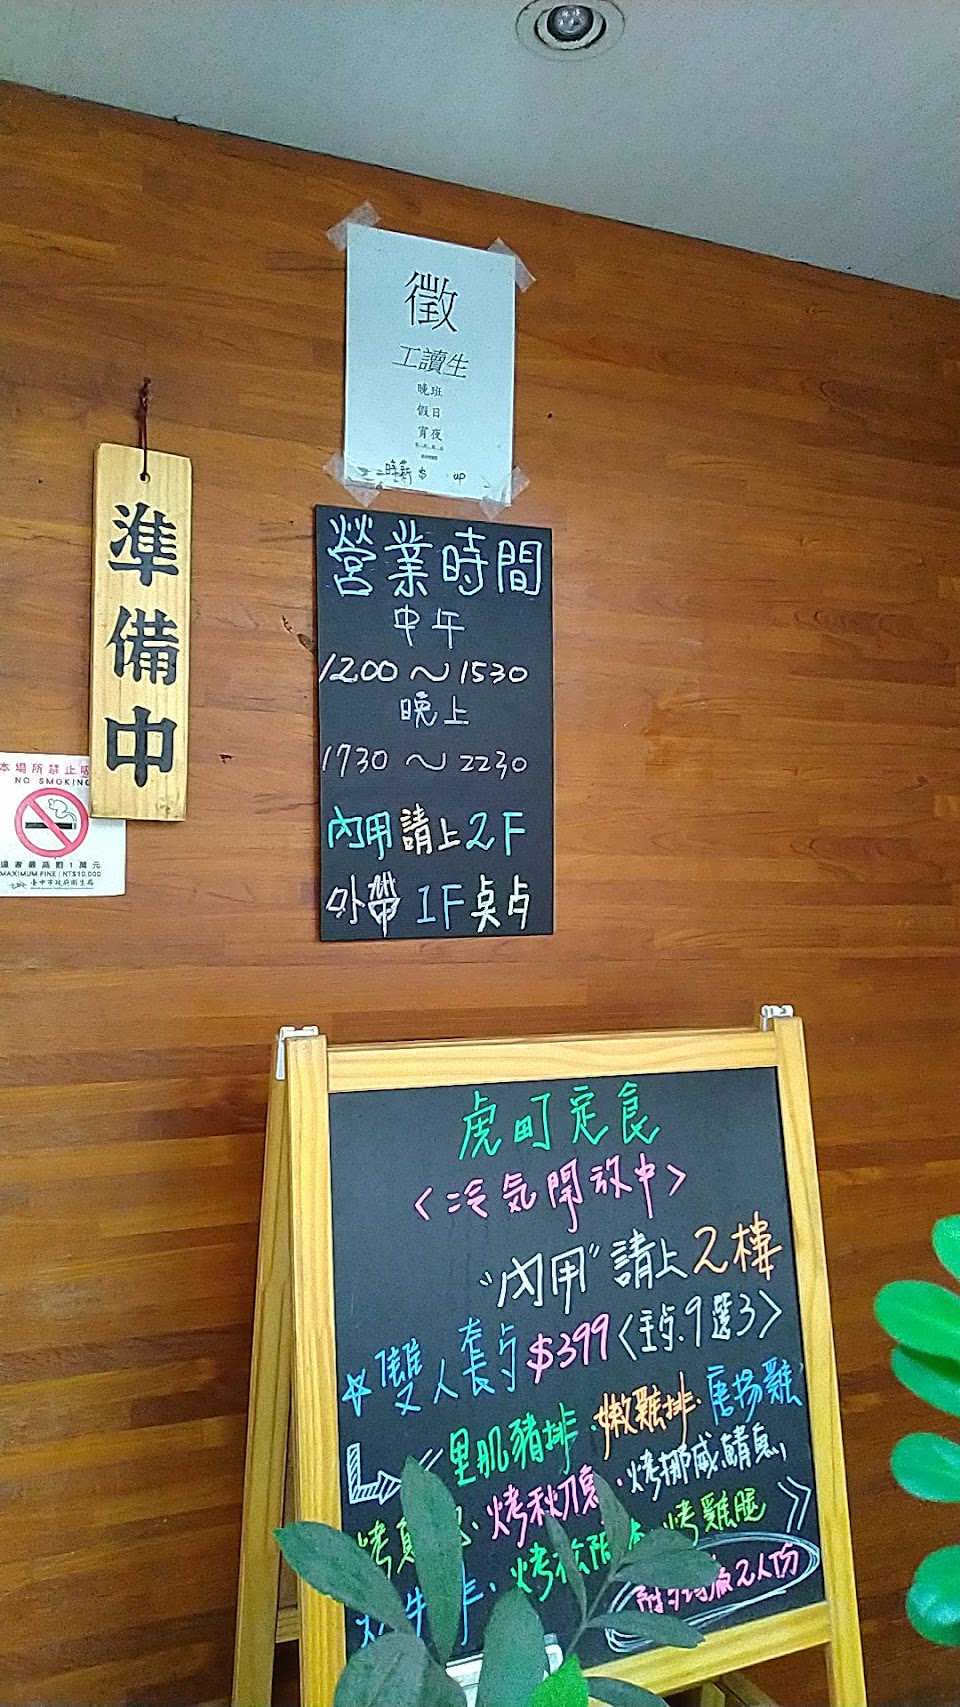 徵
工讀生
晚班
假日
宵夜
時薪 $ up
準備中
營業時間
中午
1200～1530
晚上
1730～2230
內用請上2F
外帶1F桌点
本場所禁止吸
NO SMOKING
違者最高罰1萬元
MAXIMUM FINE：NT$10,000
臺中市政府衛生局
虎町定食
<冷気開放中>
"內用"請上2樓
☆雙人套点$399<主点.9選3>
里肌豬排.嫩雞排.唐揚雞
烤真.烤秋刀魚.烤挪威鯖魚
牛.烤松阪.烤雞腿
2人份